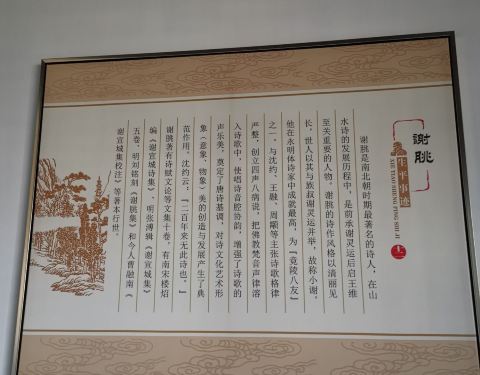 谢朓
生平事迹
XIE TIAO SHENG PING SHI JI
谢朓是南北朝时期最著名的诗人，在山
水诗的发展历程中，是前承谢灵运后启王维
至关重要的人物。谢朓的诗作风格以清丽见
长，世人以其与族叔谢灵运并举，故称小谢。
他在永明体诗家中成就最高，为“竟陵八友”
之一，与沈约、王融、周颙等主张诗歌格律
严整，创立四声八病说，把佛教梵音声律溶
入诗歌中，使唱诗音腔协韵，增强了诗歌的
声乐美，奠定了唐诗基调，对诗文化艺术形
象（意象、物象）美的创造与发展产生了典
范作用。沈约云：『二百年来无此诗也。』
谢朓著有诗赋文论等文集十卷，有南宋楼炤
编《谢宣城诗集》，明张溥辑《谢宣城集》
五卷，明刘铭刻《谢朓集》和今人曹融南《
谢宣城集校注》等著本行世。